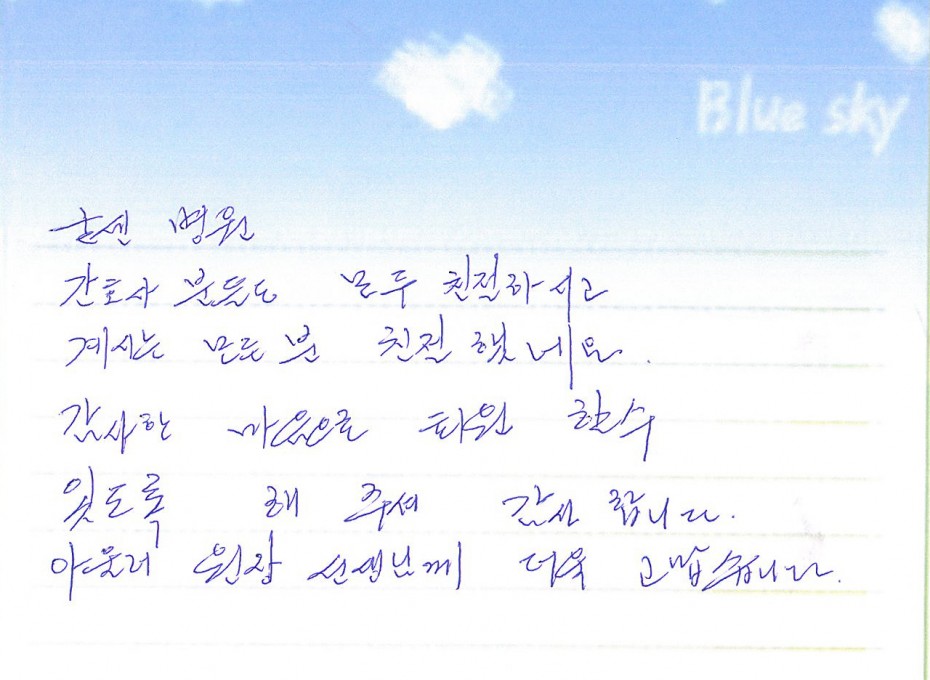 Blue sky
굳센 병원
간호사 분들도 모두 친절하시고
계시는 모든분 친절 했네요.
감사한 마음으로 퇴원 할수
잇도록 해 주셔 감사 합니다.
아울러 원장 선생님께 더욱 고맙습니다.